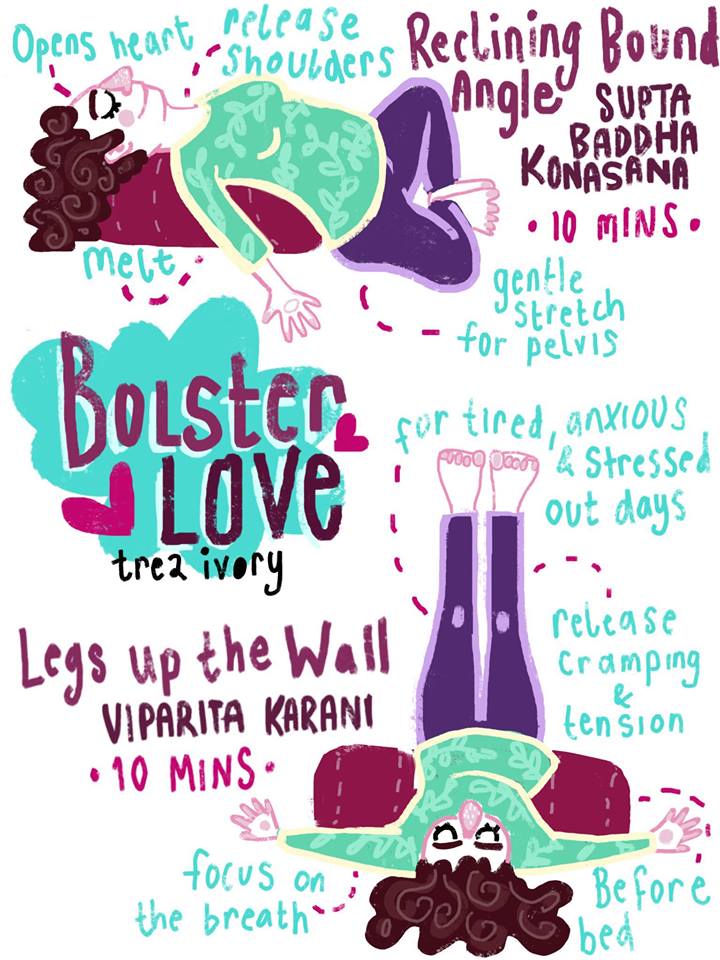 Opens heart
release
shoulders
Reclining Bound
Angle
SUPTA
BADDHA
KONASANA
• 10 MINS •
melt
gentle
stretch
for pelvis
BOLSTER
LOVE
trez ivory
for tired, anxious
& stressed
out days
release
cramping
&
tension
Legs up the Wall
VIPARITA KARANI
• 10 MINS •
focus on
the breath
Before
bed